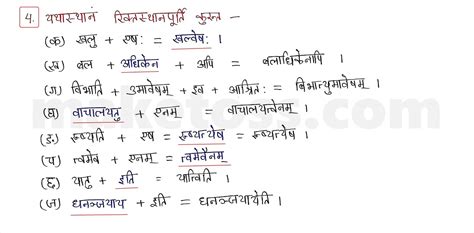 4. यथास्थानं रिक्तस्थानपूर्ति कुरुत -
(क) खलु + एषः = खल्वेषः ।
(ख) बल + अधिकेन + अपि = बलाधिकेनापि ।
(ग) बिभाति + उमावेषम् + इव + आश्रितः = बिभात्युमावेषम् ।
(घ) वाचालयतु + एनम् = वाचालयत्वेनम् ।
(ङ) रुष्यति + एष = रुष्यत्येष = रुष्यत्येष ।
(च) त्वमेव + एनम् = त्वमेवैनम्
(छ) यातु + इति = यात्विति ।
(ज) धनञ्जयाय + इति = धनञ्जयायेति ।